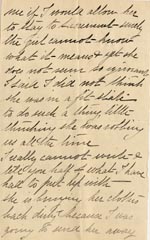 me if I would allow her
to stay to Sacrament - such
the girl cannot know
what it means & yet she
does not seem so ignorant
I said I did not think
she was in a fit state
to do such a thing little
thinking she was robbing
us all the time
I really cannot write &
tell you half of what I have
had to put up with
she is bringing her clothes
back dirty because I was
going to send her away